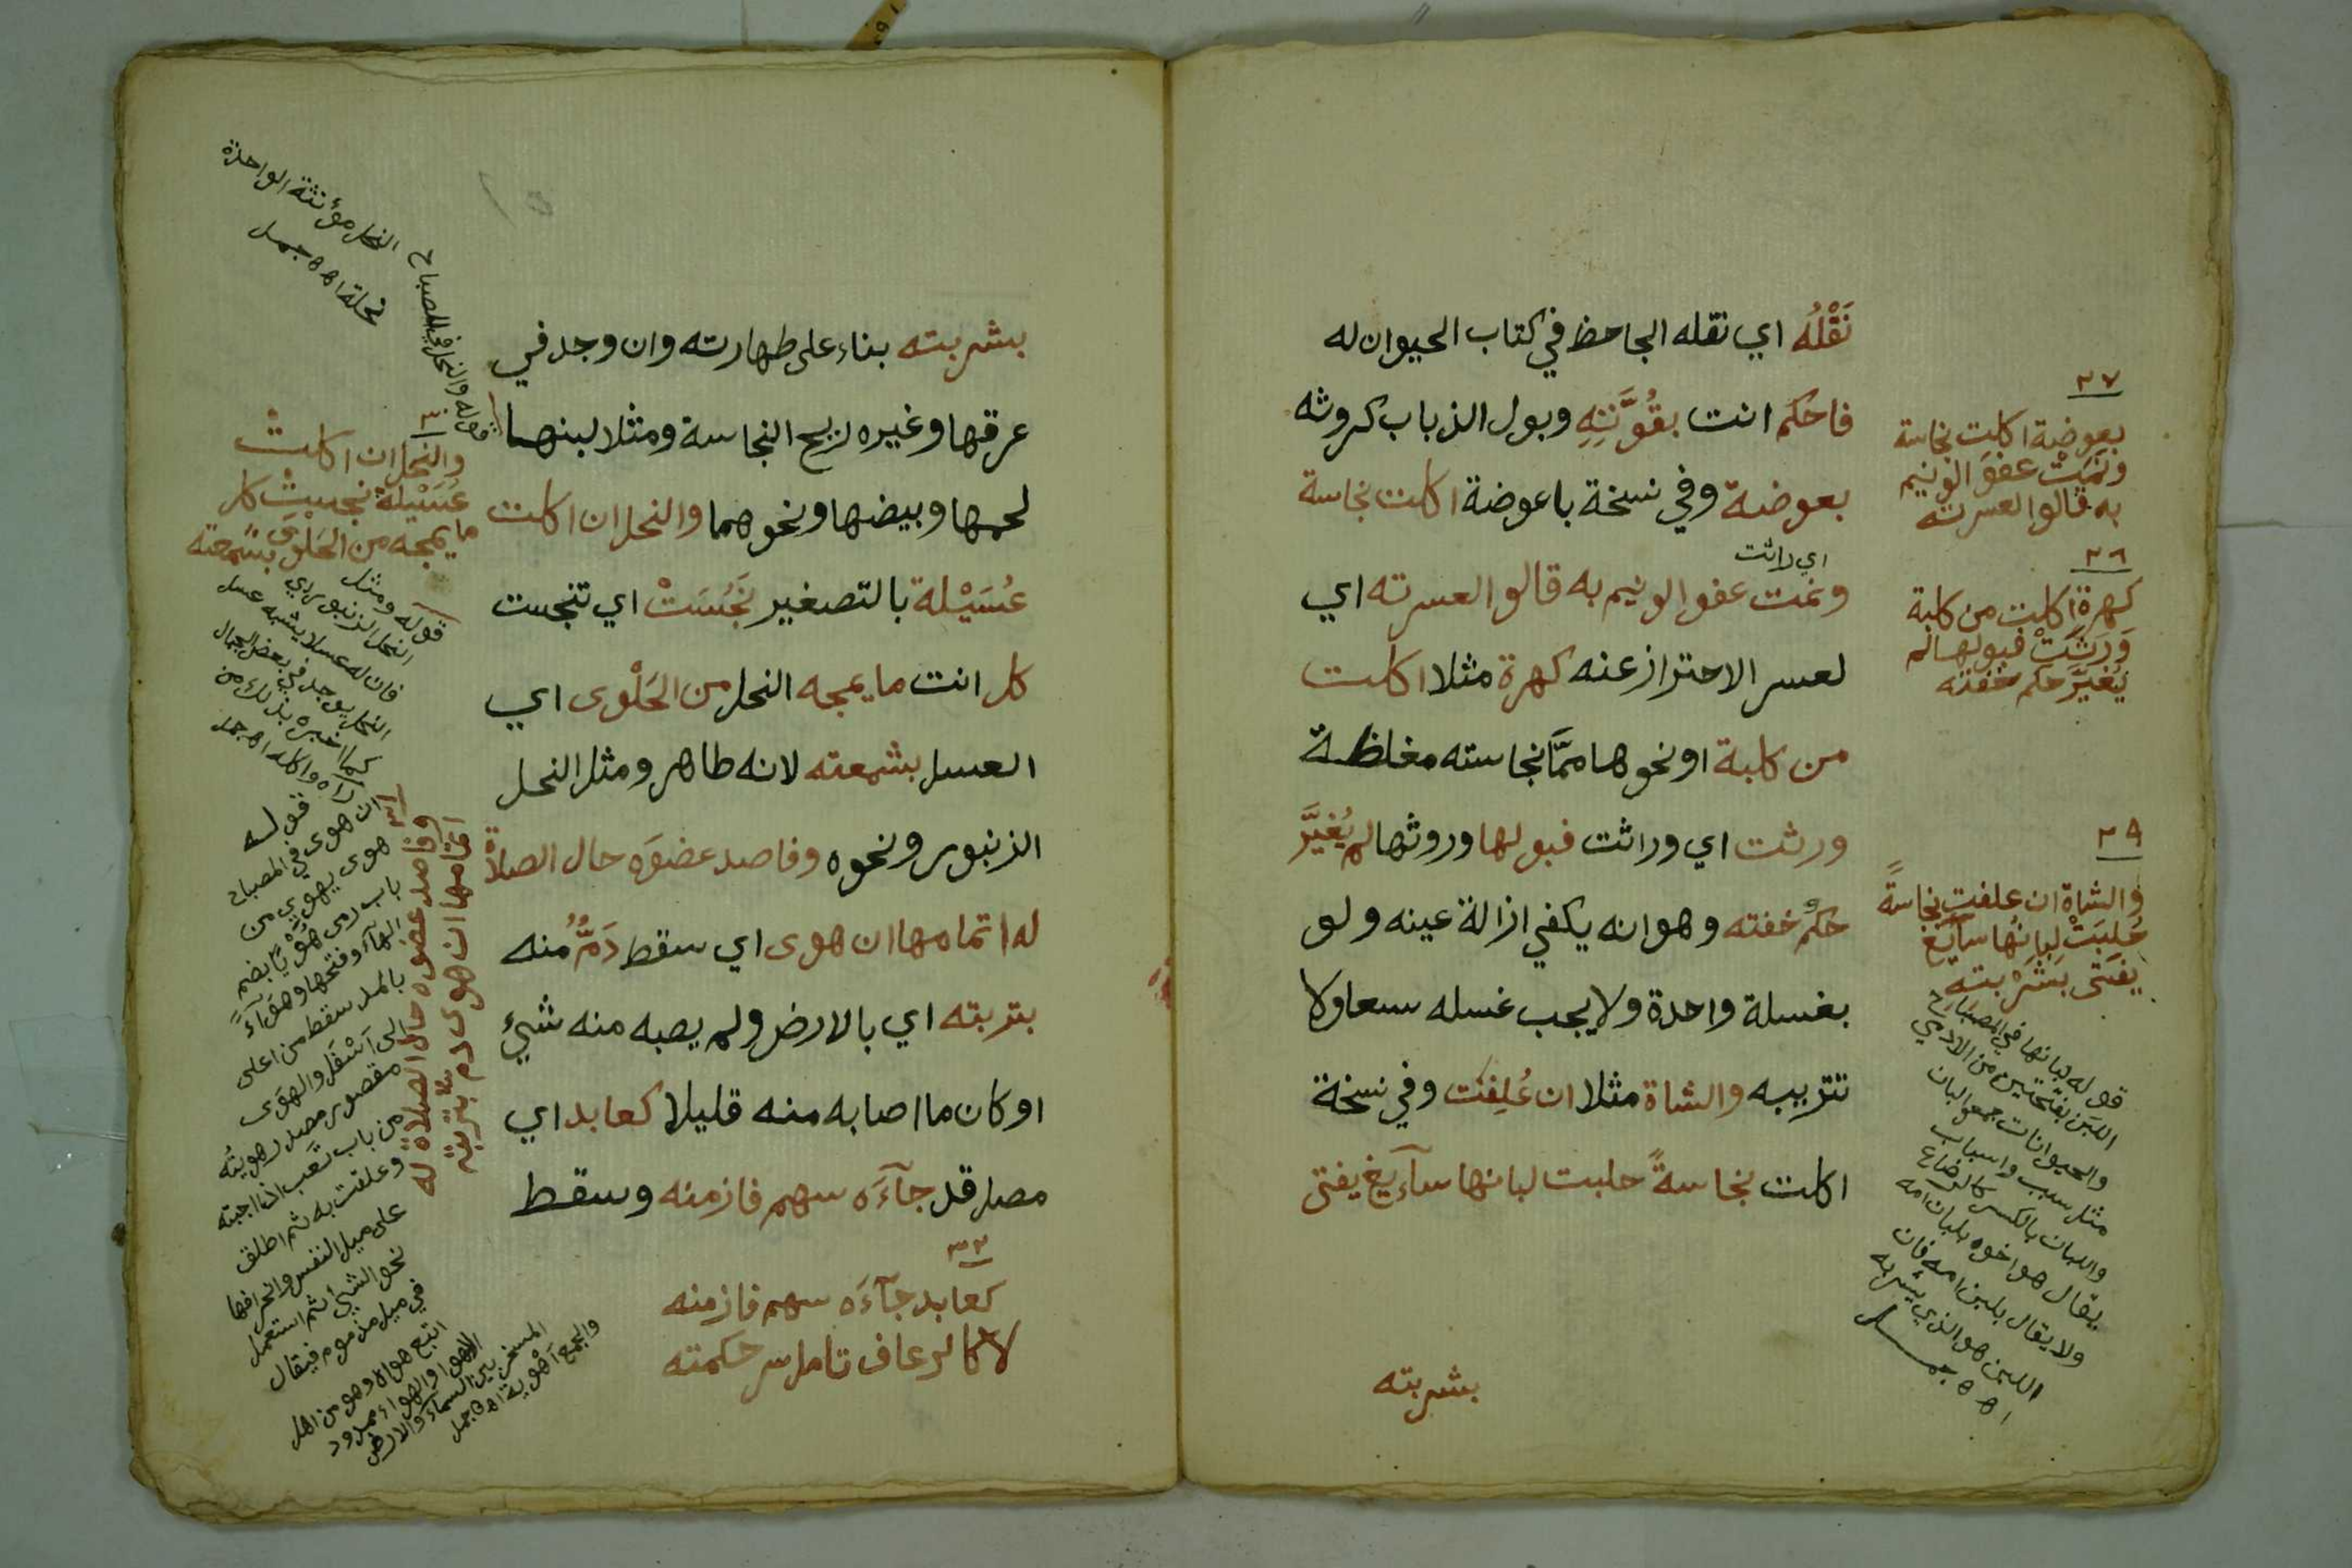 نَقْلُه اي نقله الجاحظ في كتاب الحيوان له
فاحكم انت بقُوَّتِهِ وبول الذباب كروثه
بعوضة وفي نسخة باعوضة اكلت نجاسة
اي راثت
ونمت عفو الونيم به قالوا لعسرته اي
لعسر الاحتراز عنه كهرة مثلا اكلت
من كلبة او نحوها ممَّا نجاسته مغلظة
ورثت اي وراثت فبولها وروثها لم يُغَيَّر
حكم خفته وهو انه يكفي ازالة عينه ولو
بغسلة واحدة ولا يجب غسله سبعا ولا
تتريبه والشاة مثلا ان عُلِفَت وفي نسخة
اكلت نجاسةً حلبت لبانها سآيغ يفتى
بشربته
٢٧
بعوضة اكلت نجاسة
ونَمَتْ عفوَ الونيم
به قالوا لعسرته
٢٨
كهرة اكلت من كلبة
وَرَثَتْ فبولها لم
يُغيَّر حكم خفته
٢٩
والشاة ان علفت نجاسةً
حُلِبَتْ لبانُها سآيغ
يفتى بشَرْبته
قوله لبانها في المصباح
اللبن بفتحتين من الآدمي
والحيوانات جمع البان
مثل سبب واسباب
واللبان بالكسر كالرضاع
يقال هو اخوه بلبان امه
ولا يقال بلبن امه فان
اللبن هو الذي يشربه
اهـ جمل
بشربته بناء على طهارته وان وجد في
عرقها وغيره لريح النجاسة ومثلا لبنها
لحمها وبيضها ونحوهما والنحل ان اكلت
عُسَيْلة بالتصغير نَجُسَتْ اي تنجست
كل انت ما يمجه النحل من الحَلْوى اي
العسل بشمعته لانه طاهر ومثل النحل
الزنبور ونحوه وفاصد عضوَه حال الصلاة
له اتمامها ان هوى اي سقط دَمٌ منه
بتربته اي بالارض ولم يصبه منه شيئ
او كان ما اصابه منه قليلا كعابد اي
مصل قد جآءَه سهم فازمنه وسقط
٣٢
كعابد جآءَه سهم فازمنه
لا كالرعاف تامل سر حكمته
قوله والنحل في المصباح
النحل مؤنثة الواحدة
نحلة اهـ جمل
٣٠
والنحل ان اكلت
عُسَيْلةً نجست كل
ما يمجه من الحَلْوى بشمعته
قوله ومثل
النحل الزنبور اي
فان له عسلا يشبه عسل
النحل يوجد في بعض الجبال
كما اخبره بذلك من
رآه واكله اهـ جمل
٣١
وفاصد عضوه حال الصلاة له
اتمامها ان هوى دم بتربته
قوله
ان هوى في المصباح
هوى يهوي من
باب رمى هُوِيًّا بضم
الهآء وفتحها وهوآءً
بالمد سقط من اعلى
الى اسْفَل والهوى
مقصور مصدر هويتُه
من باب تعب اذا احببته
وعلقت به ثم اطلق
على ميل النفس وانحرافها
نحو الشيئ ثم استعمل
في ميل مذموم فيقال
اتبع هواه وهو من اهل
الاهوا والهواء ممدود
المسخر بين السماء والارض
والجمع اهوية اهـ جمل